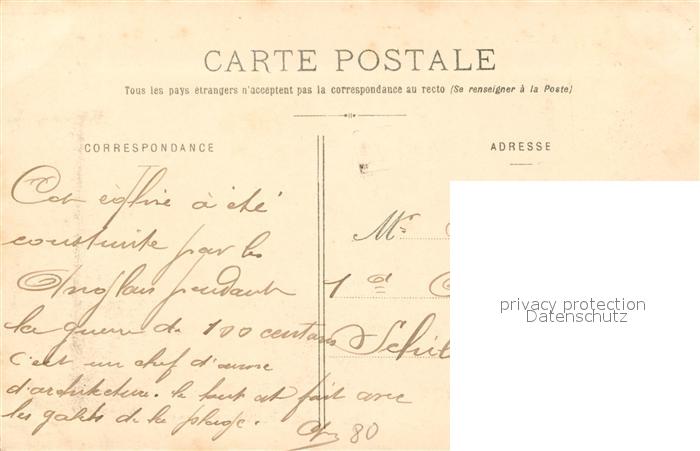 CARTE POSTALE
Tous les pays étrangers n'acceptent pas la correspondance au recto (Se renseigner à la Poste)
CORRESPONDANCE
ADRESSE
Cet église à été
construite par les
Anglais pendant
la guerre de 100 cent ans
c'est un chef d'œuvre
d'architecture. le tout est fait avec
les galets de la plage.
80
Mr
1 d
Schil
privacy protection
Datenschutz